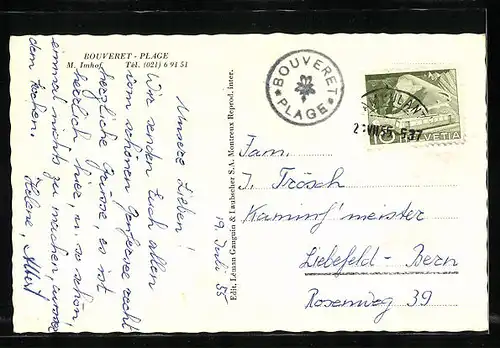 BOUVERET - PLAGE
M. Imhof Tél. (021) 6 91 51
Unsere Lieben!
Wir senden Euch allen
vom schönen Genfersee recht
herzliche Grüsse, es ist
herrlich hier, u. so schön
einmal nichts zu machen, ausser
dem Kochen.
Helene, Albert
19. Juli 55
Edit. Léman Ganguin & Laubscher S.A. Montreux Reprod. inter.
BOUVERET
PLAGE
HELVETIA
Fam.
J. Trösch
Kaminf'meister
Liebefeld - Bern
Rosenweg 39